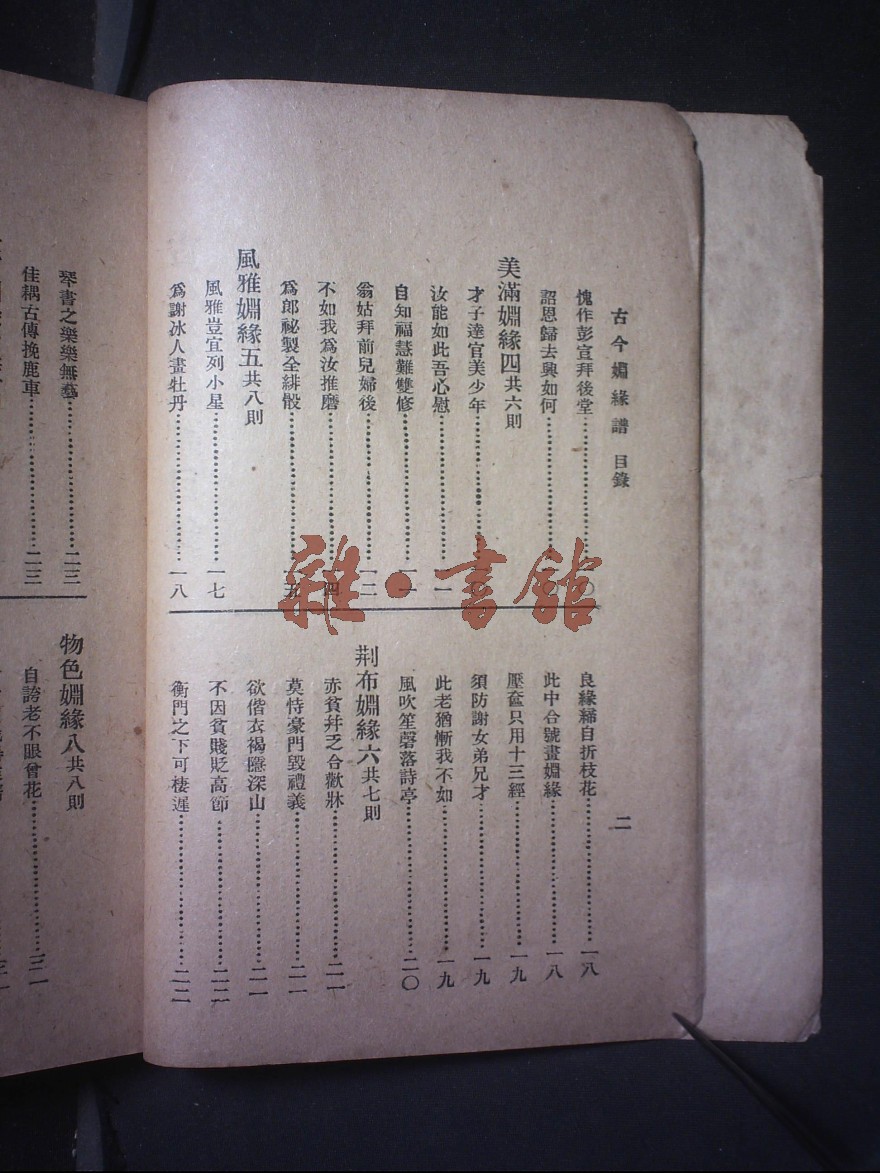 古今婣緣譜 目錄
二
愧作彭宣拜後堂
詔恩歸去興如何
美滿婣緣四共六則
才子達官美少年
汝能如此吾心慰
自知福慧難雙修 一一
翁姑拜前兒婦後 一二
不如我爲汝推磨
爲郎祕製全緋骰
風雅婣緣五共八則
風雅豈宜列小星 一七
爲謝冰人畫牡丹 一八
良緣締自折枝花 一八
此中合號畫婣緣 一八
壓奩只用十三經 一九
須防謝女弟兄才 一九
此老猶慚我不如 一九
風吹笙磬落詩亭 二〇
荆布婣緣六共七則
赤貧幷乏合歡牀 二一
莫恃豪門毀禮義 二一
欲偕衣褐隱深山 二一
不因貧賤貶高節 二二
衡門之下可棲遲 二二
琴書之樂樂無
佳耦古傳挽鹿車 二三
物色婣緣八共八則
自誇老不眼曾花 三一
雜·書館